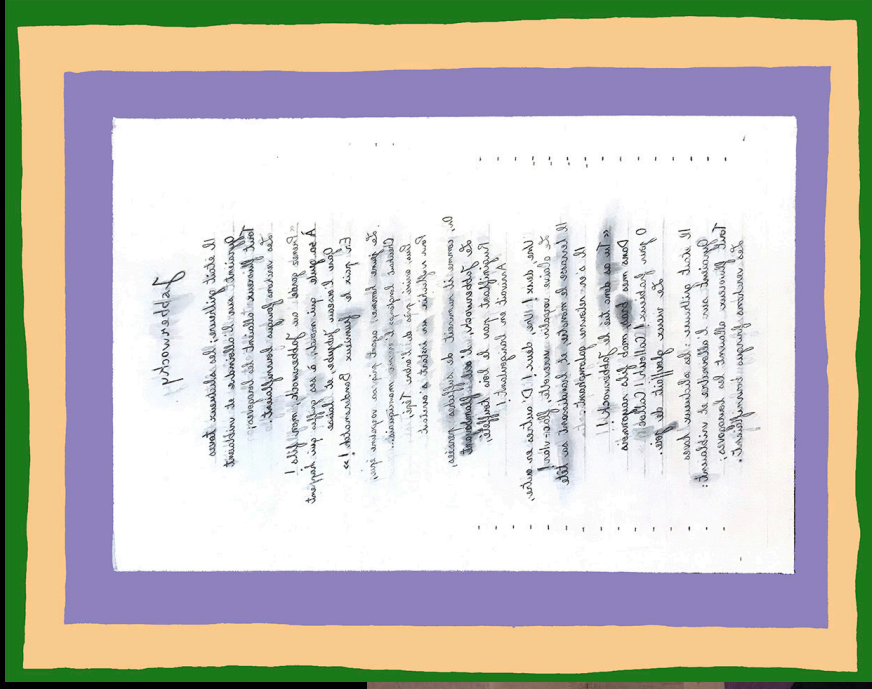 Jabberwocky
Il était grilheure; les slictueux toves
Gyraient sur l'alloinde et vriblaient
Tout flivoreux allaient les borogoves;
Les verchons fourgus bourniflaient.
«Prends garde au Jabberwock, mon fils !
À sa gueule qui mord, à ses griffes qui happent
Gare l'oiseau Jubjube, et laisse
En paix le frumieux Bandersnatch !»
Le jeune homme, ayant pris sa vorpaline épée,
Cherchait longtemps l'ennemi manxiquais.
Puis, arrivé près de l'arbre Tépé,
Pour réfléchir un instant s'arrêtait
Or, comme il ruminait de suffêches pensées,
Le Jabberwock, l'œil flamboyant
Ruginiflant par le bois touffeté,
Arrivait en barigoulant !
Une, deux ! Une, deux ! D'outre en outre,
Le glaive vorpalin virevolte, flac-vlan !
Il terrasse le monstre, et, brandissant sa tête
Il s'en retourne galomphant.
«Tu as donc tué le Jabberwock !
Dans mes bras, mon fils rayonnois
O jour
Le vieux glouffait de joie.
Il était grilheure: les slictueux toves
Gyraient sur l'alloinde et vriblaient:
Tout flivoreux allaient les borogoves;
Les verchons fourgus bourniflaient.